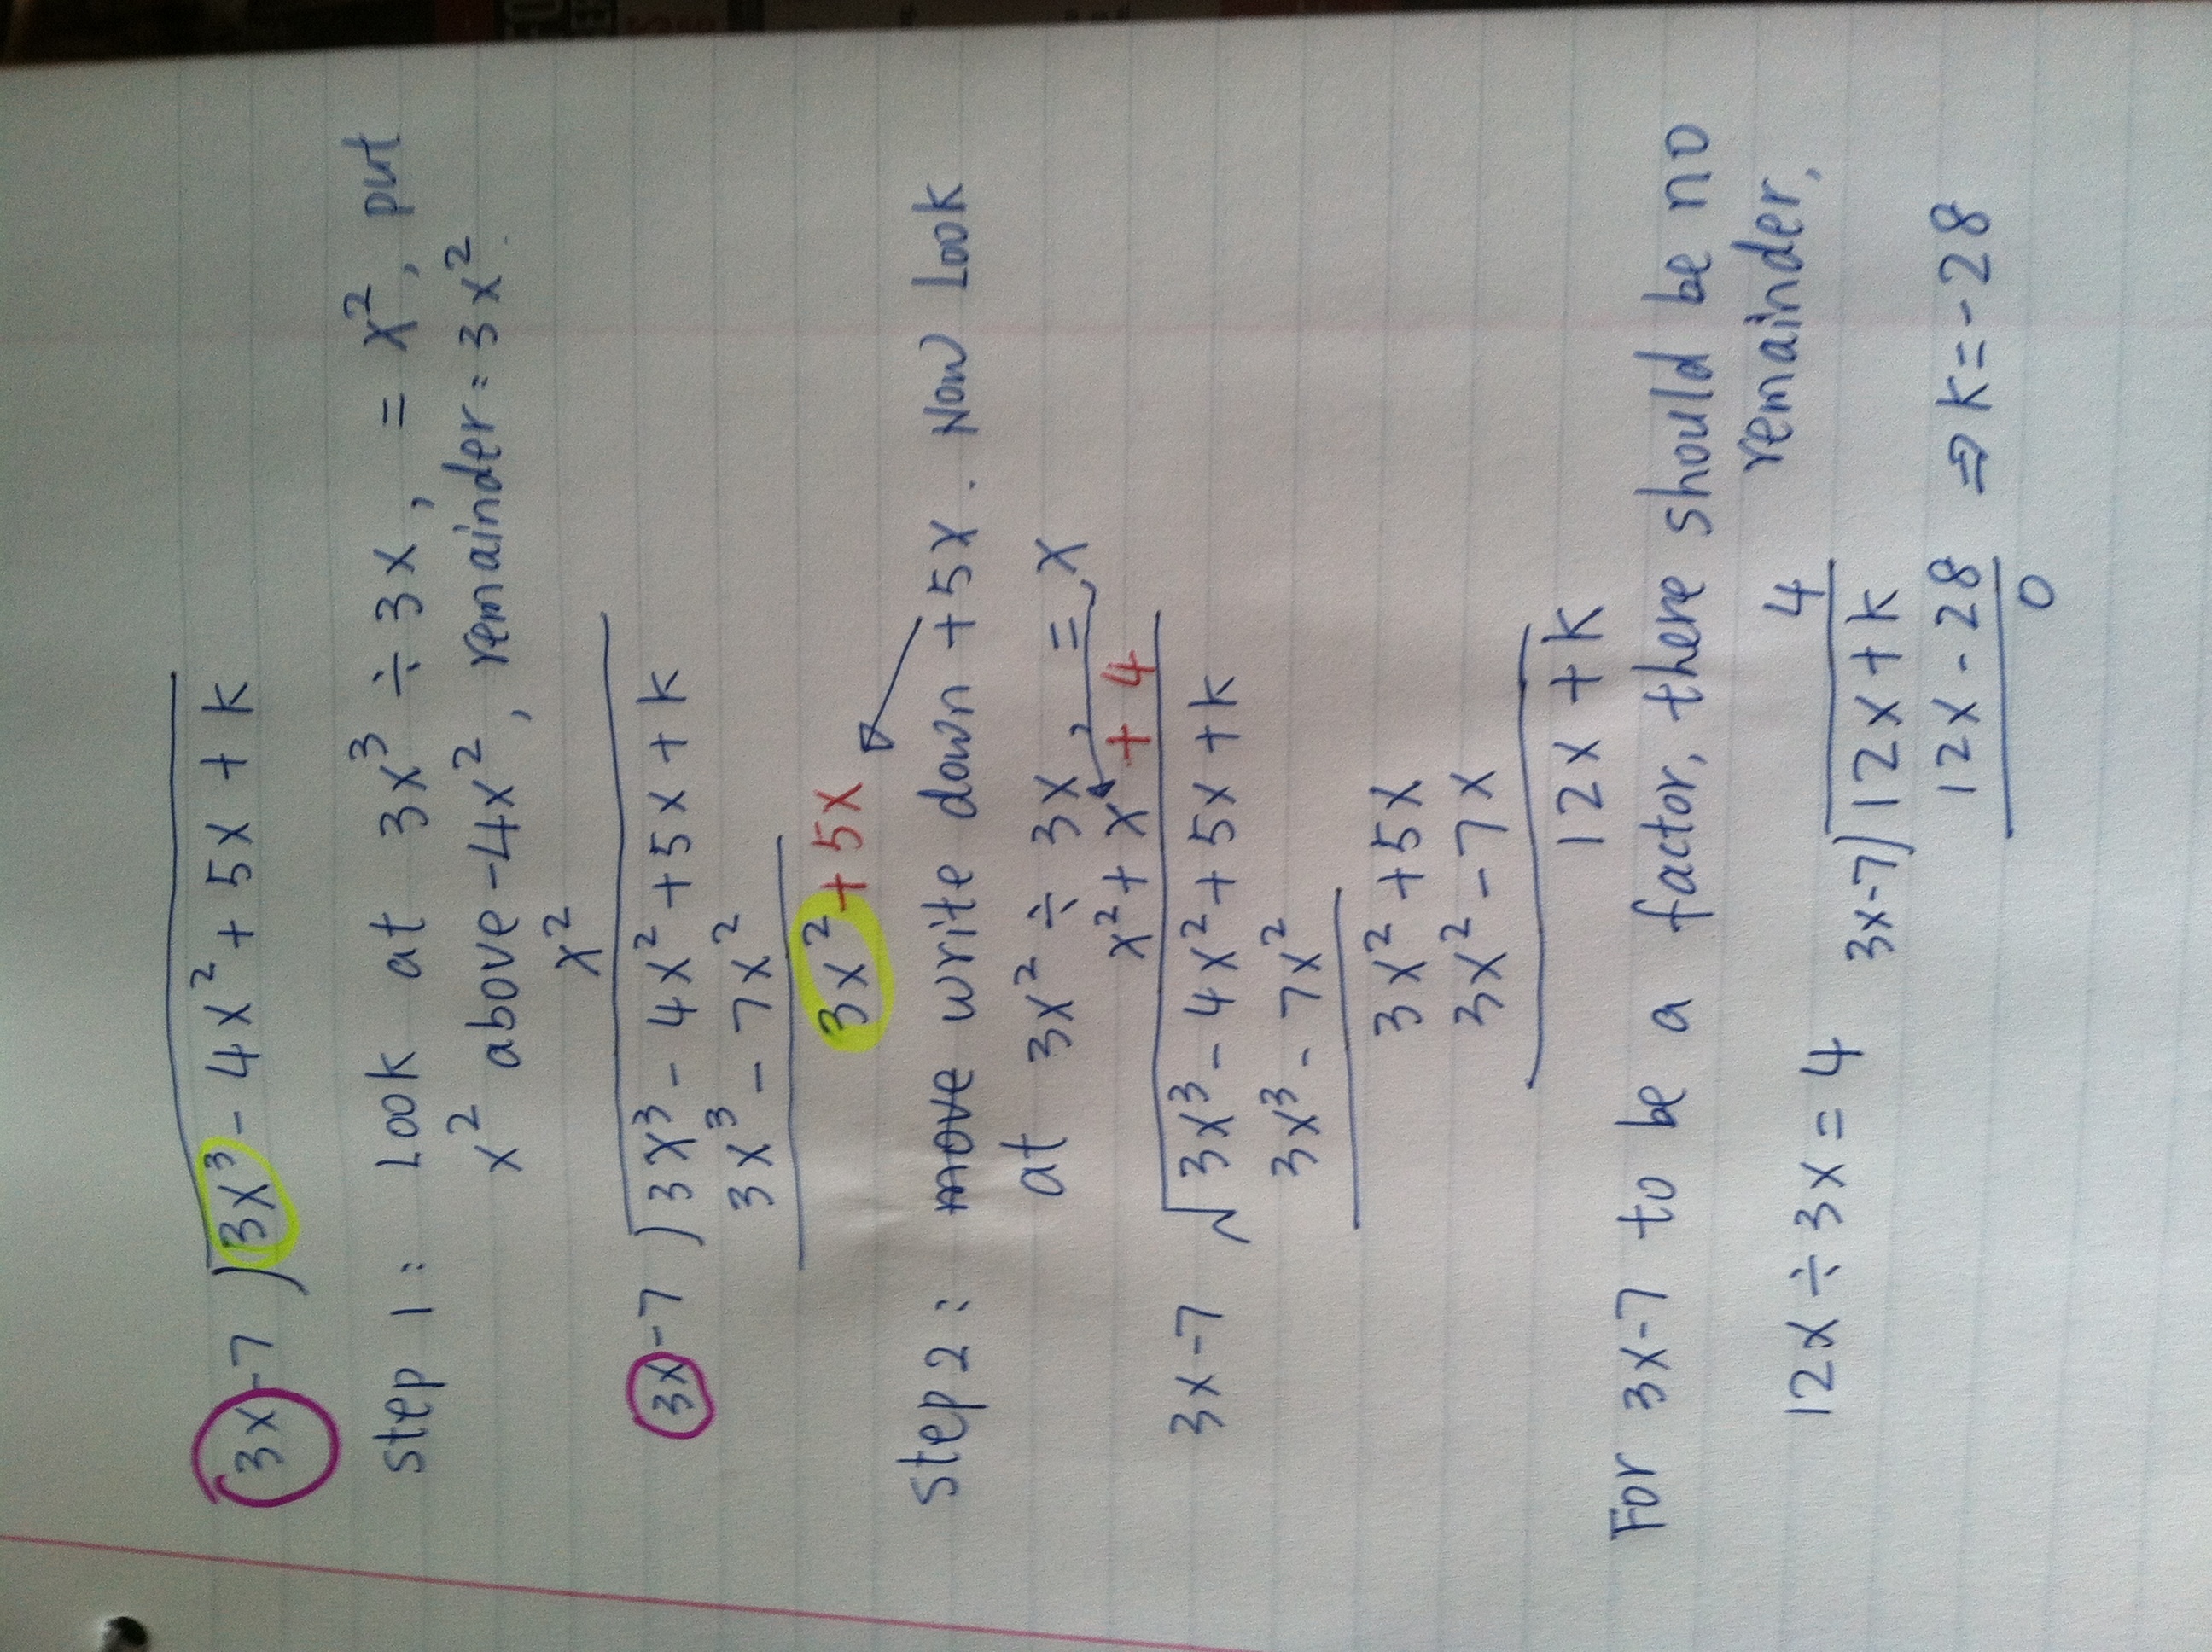 3x-7 ) 3x³ - 4x² + 5x + k
step 1: Look at 3x³ ÷ 3x, = x², put
x² above -4x², remainder = 3x².
x²
3x-7 ) 3x³ - 4x² + 5x + k
3x³ - 7x²
3x² + 5x
step 2: move write down +5x. Now Look
at 3x² ÷ 3x = x
x² + x + 4
3x-7 √ 3x³ - 4x² + 5x + k
3x³ - 7x²
3x² + 5x
3x² - 7x
12x + k
For 3x-7 to be a factor, there should be no
remainder,
4
12x ÷ 3x = 4 3x-7 ) 12x + k
12x - 28 ⇒ k = -28
0